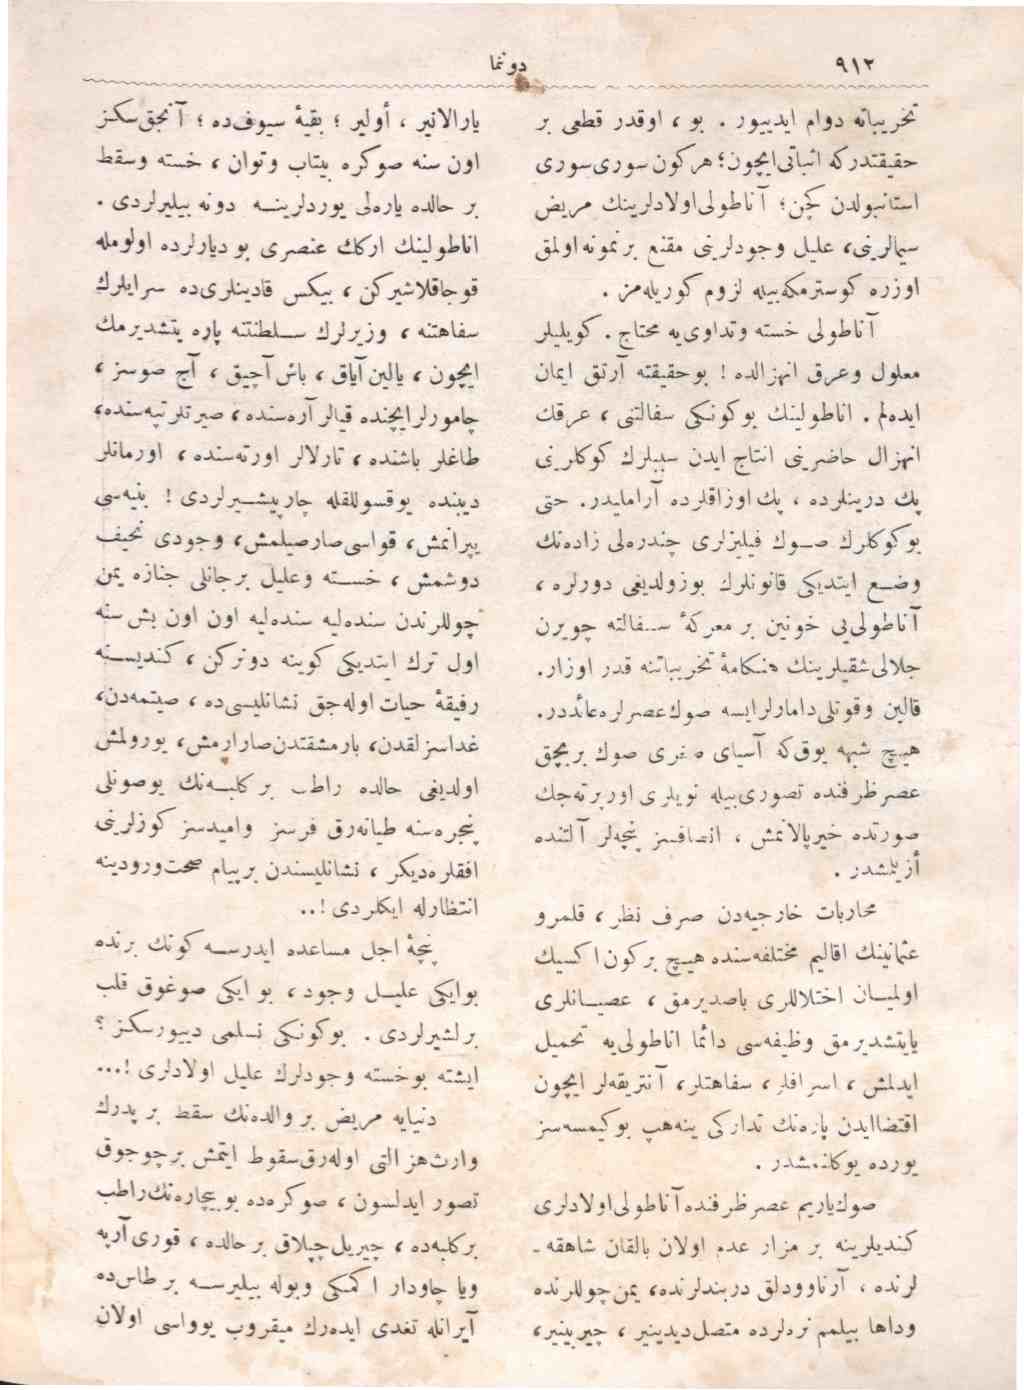 ٩١٢
دونما
تخریباته دوام ایدییور . بو ، اوقدر قطعی بر
حقیقتدركه اثباتی‌ایچون؛ هركون سوری‌سوری
استانبولدن كچن؛ آناطولی‌اولادلرینك مریض
سیمالرینی، علیل وجودلرینی مقنع برنمونه‌اولمق
اوزره كوسترمكه‌بیله لزوم كوریله‌مز .
آناطولی خسته وتداوی‌یه محتاج . كویلیلر
معلول وعرق انهزالده ! بوحقیقته آرتق ایمان
ایده‌لم . اناطولینك بوكونكی سفالتنی ، عرقك
انهزال حاضرینی انتاج ایدن سببلرك كوكلرینی
پك درینلرده ، پك‌اوزاقلرده آرامالیدر. حتی
بوكوكلرك صوك فیلیزلری چندره‌لی زاده‌نك
وضع ایتدیكی قانونلرك بوزولدیغی دورلره ،
آناطولی‌یی خونین بر معركهٔ سفالته چویرن
جلالی‌شقیلرینك هنكامهٔ تخریباتنه قدر اوزار.
قالین وقوتلی‌دامارلرایسه صوك‌عصرلره‌عائددر.
هیچ شبهه یوق‌كه آسیای صغری صوك بربچق
عصرظرفنده تصوری‌بیله تویلری اورپرته‌جك
صورتده خیرپالانمش ، انصافسز پنچه‌لر آلتنده
أزیلمشدر .
محاربات خارجیه‌دن صرف نظر ، قلمرو
عثمانینك اقالیم مختلفه‌سنده هیچ بركون‌اكسیك
اولمیان اختلاللری باصدیرمق ، عصیانلری
یاتیشدیرمق وظیفه‌سی دائما اناطولی‌یه تحمیل
ایدلمش ، اسرافلر ، سفاهتلر، آنتریقه‌لر ایچون
اقتضاایدن پاره‌نك تداركی ینه‌هپ بوكیمسه‌سز
یورده یوكلنمشدر .
صوك‌یاریم عصرظرفنده‌آناطولی‌اولادلری
كندیلرینه بر مزار عدم اولان بالقان شاهقه‌ـ
لرنده ، آرناوودلق دربندلرنده، یمن‌چوللرنده
وداها بیلمم نره‌لرده متصل‌دیدینیر ، چیرپینیر،
یارالانیر ، أولیر ؛ بقیهٔ سیوف‌ده ؛ آنجق‌سكز
اون سنه صوكره بیتاب وتوان ، خسته وسقط
بر حالده یاره‌لی یوردلرینه دونه بیلیرلردی .
اناطولینك اركك عنصری بو دیارلرده اولومله
قوجاقلاشیركن ، بیكس قادینلری‌ده سرایلرك
سفاهتنه ، وزیرلرك سلطنتنه پاره یتشدیرمك
ایچون ، یالین‌آیاق ، باش‌آچیق ، آج صوسز ،
چامورلرایچنده قیالر آره‌سنده، صیرتلرتپه‌سنده،
طاغلر باشنده ، تارلالر اورته‌سنده ، اورمانلر
دیبنده یوقسوللقله چارپیشیرلردی ! بنیه‌سی
ییپرانمش، قواسی‌صارصیلمش، وجودی نحیف
دوشمش ، خسته وعلیل برجانلی جنازه یمن
چوللرندن سنده‌لیه سنده‌لیه اون اون بش سنه
اول ترك ایتدیكی كوینه دونركن ، كندیسنه
رفیقهٔ حیات اوله‌جق نشانلیسی‌ده ، صیتمه‌دن،
غداسزلقدن، بارمشقتدن‌صارارمش، یورولمش
اولدیغی حالده راطب بر كلبه‌نك یوصونلی
پنجره‌سنه طیانه‌رق فرسز وامیدسز كوزلرینی
افقلره‌دیكر ، نشانلیسندن برپیام صحت‌ورودینه
انتظارله ایكلردی !..
پنچهٔ اجل مساعده ایدرسه كونك برنده
بوایكی علیل وجود ، بو ایكی صوغوق قلب
برلشیرلردی . بوكونكی نسلمی دییورسكز ؟
ایشته بوخسته وجودلرك علیل اولادلری !...
دنیایه مریض بر والده‌نك سقط بر پدرك
وارث‌هزالتی اوله‌رق‌سقوط ایتمش برچوجوق
تصور ایدلسون ، صوكره‌ده بو بیچاره‌نك‌راطب
بركلبه‌ده ، چیریل‌چپلاق برحالده ، قوری‌آرپه
ویا چاودار اكمكی وبوله بیلیرسه بر طاس‌ده
آیرانله تغدی ایده‌رك میقروب یوواسی اولان